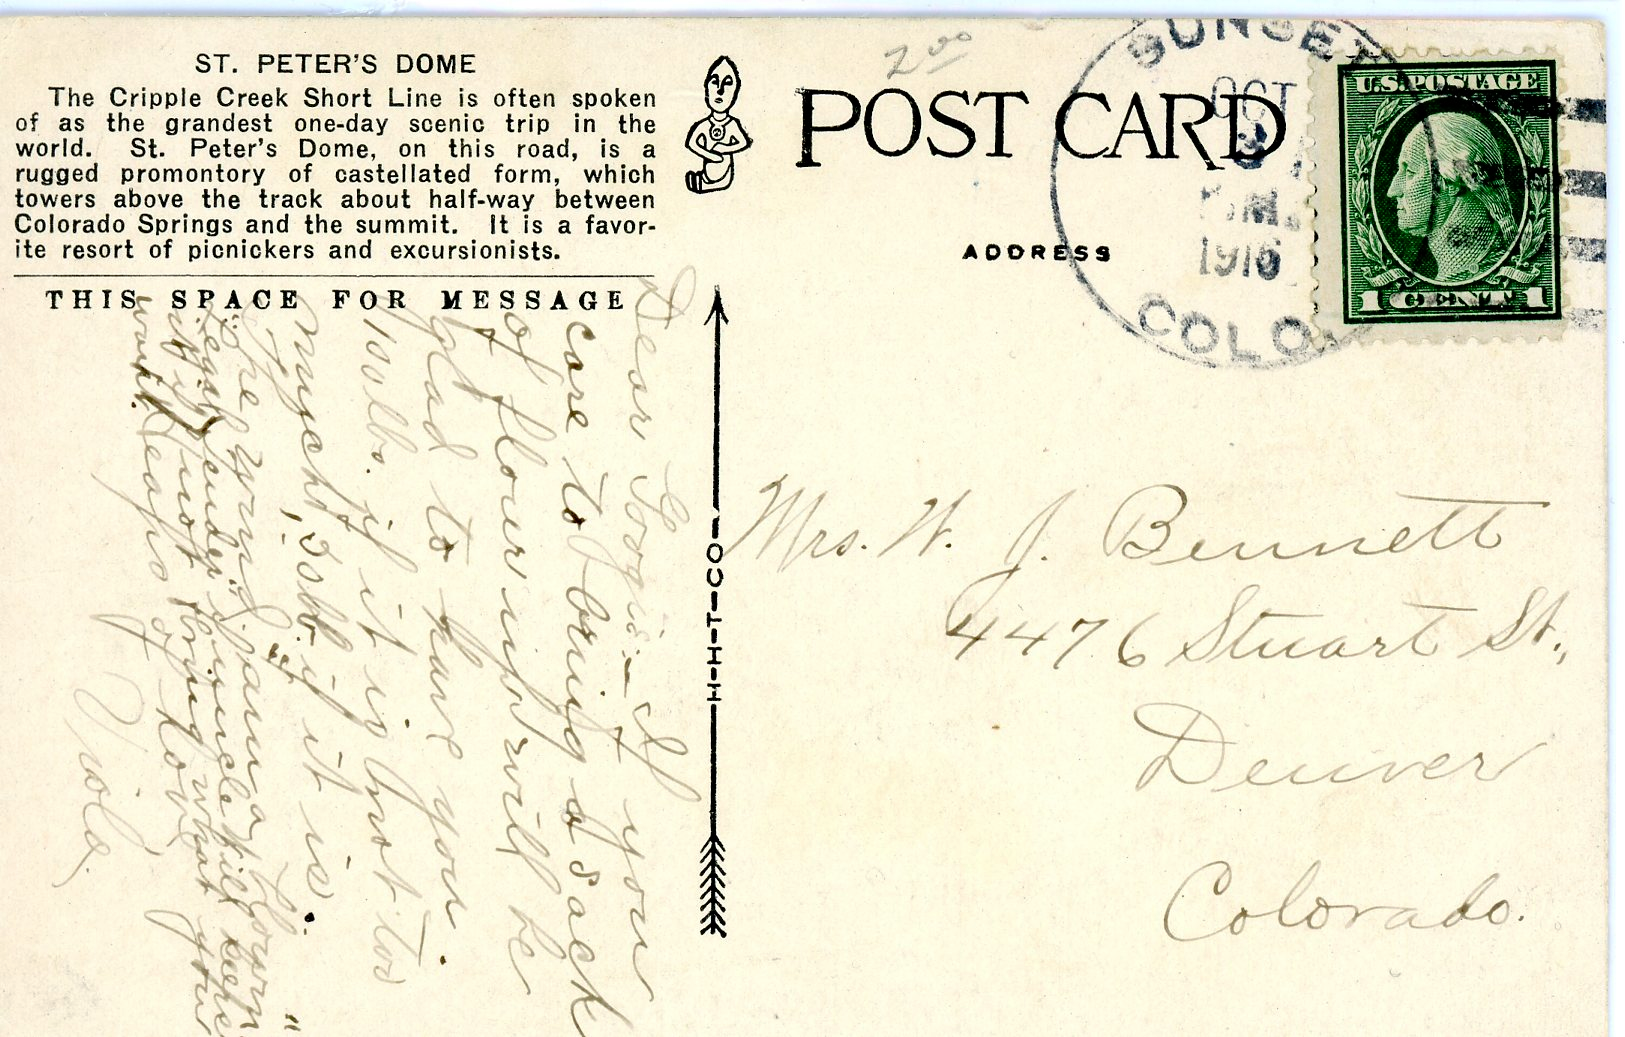 ST. PETER'S DOME
The Cripple Creek Short Line is often spoken
of as the grandest one-day scenic trip in the
world. St. Peter's Dome, on this road, is a
rugged promontory of castellated form, which
towers above the track about half-way between
Colorado Springs and the summit. It is a favor-
ite resort of picnickers and excursionists.
THIS SPACE FOR MESSAGE
Dear :- If you
care to bring a sack
of flour up will be
glad to have you.
100 lbs. if it is not too
much, 50 lb if it is.
"The Wind Jammer"

if not bring what you
want. Heaps of love
Viola.
H-H-T-CO
2 00
POST CARD
ADDRESS
SUNSET
OCT
3
P.M.
1916
COLO.
U.S. POSTAGE
1 CENT 1
Mrs. W. J. Bennett
4476 Stuart St.,
Denver
Colorado.